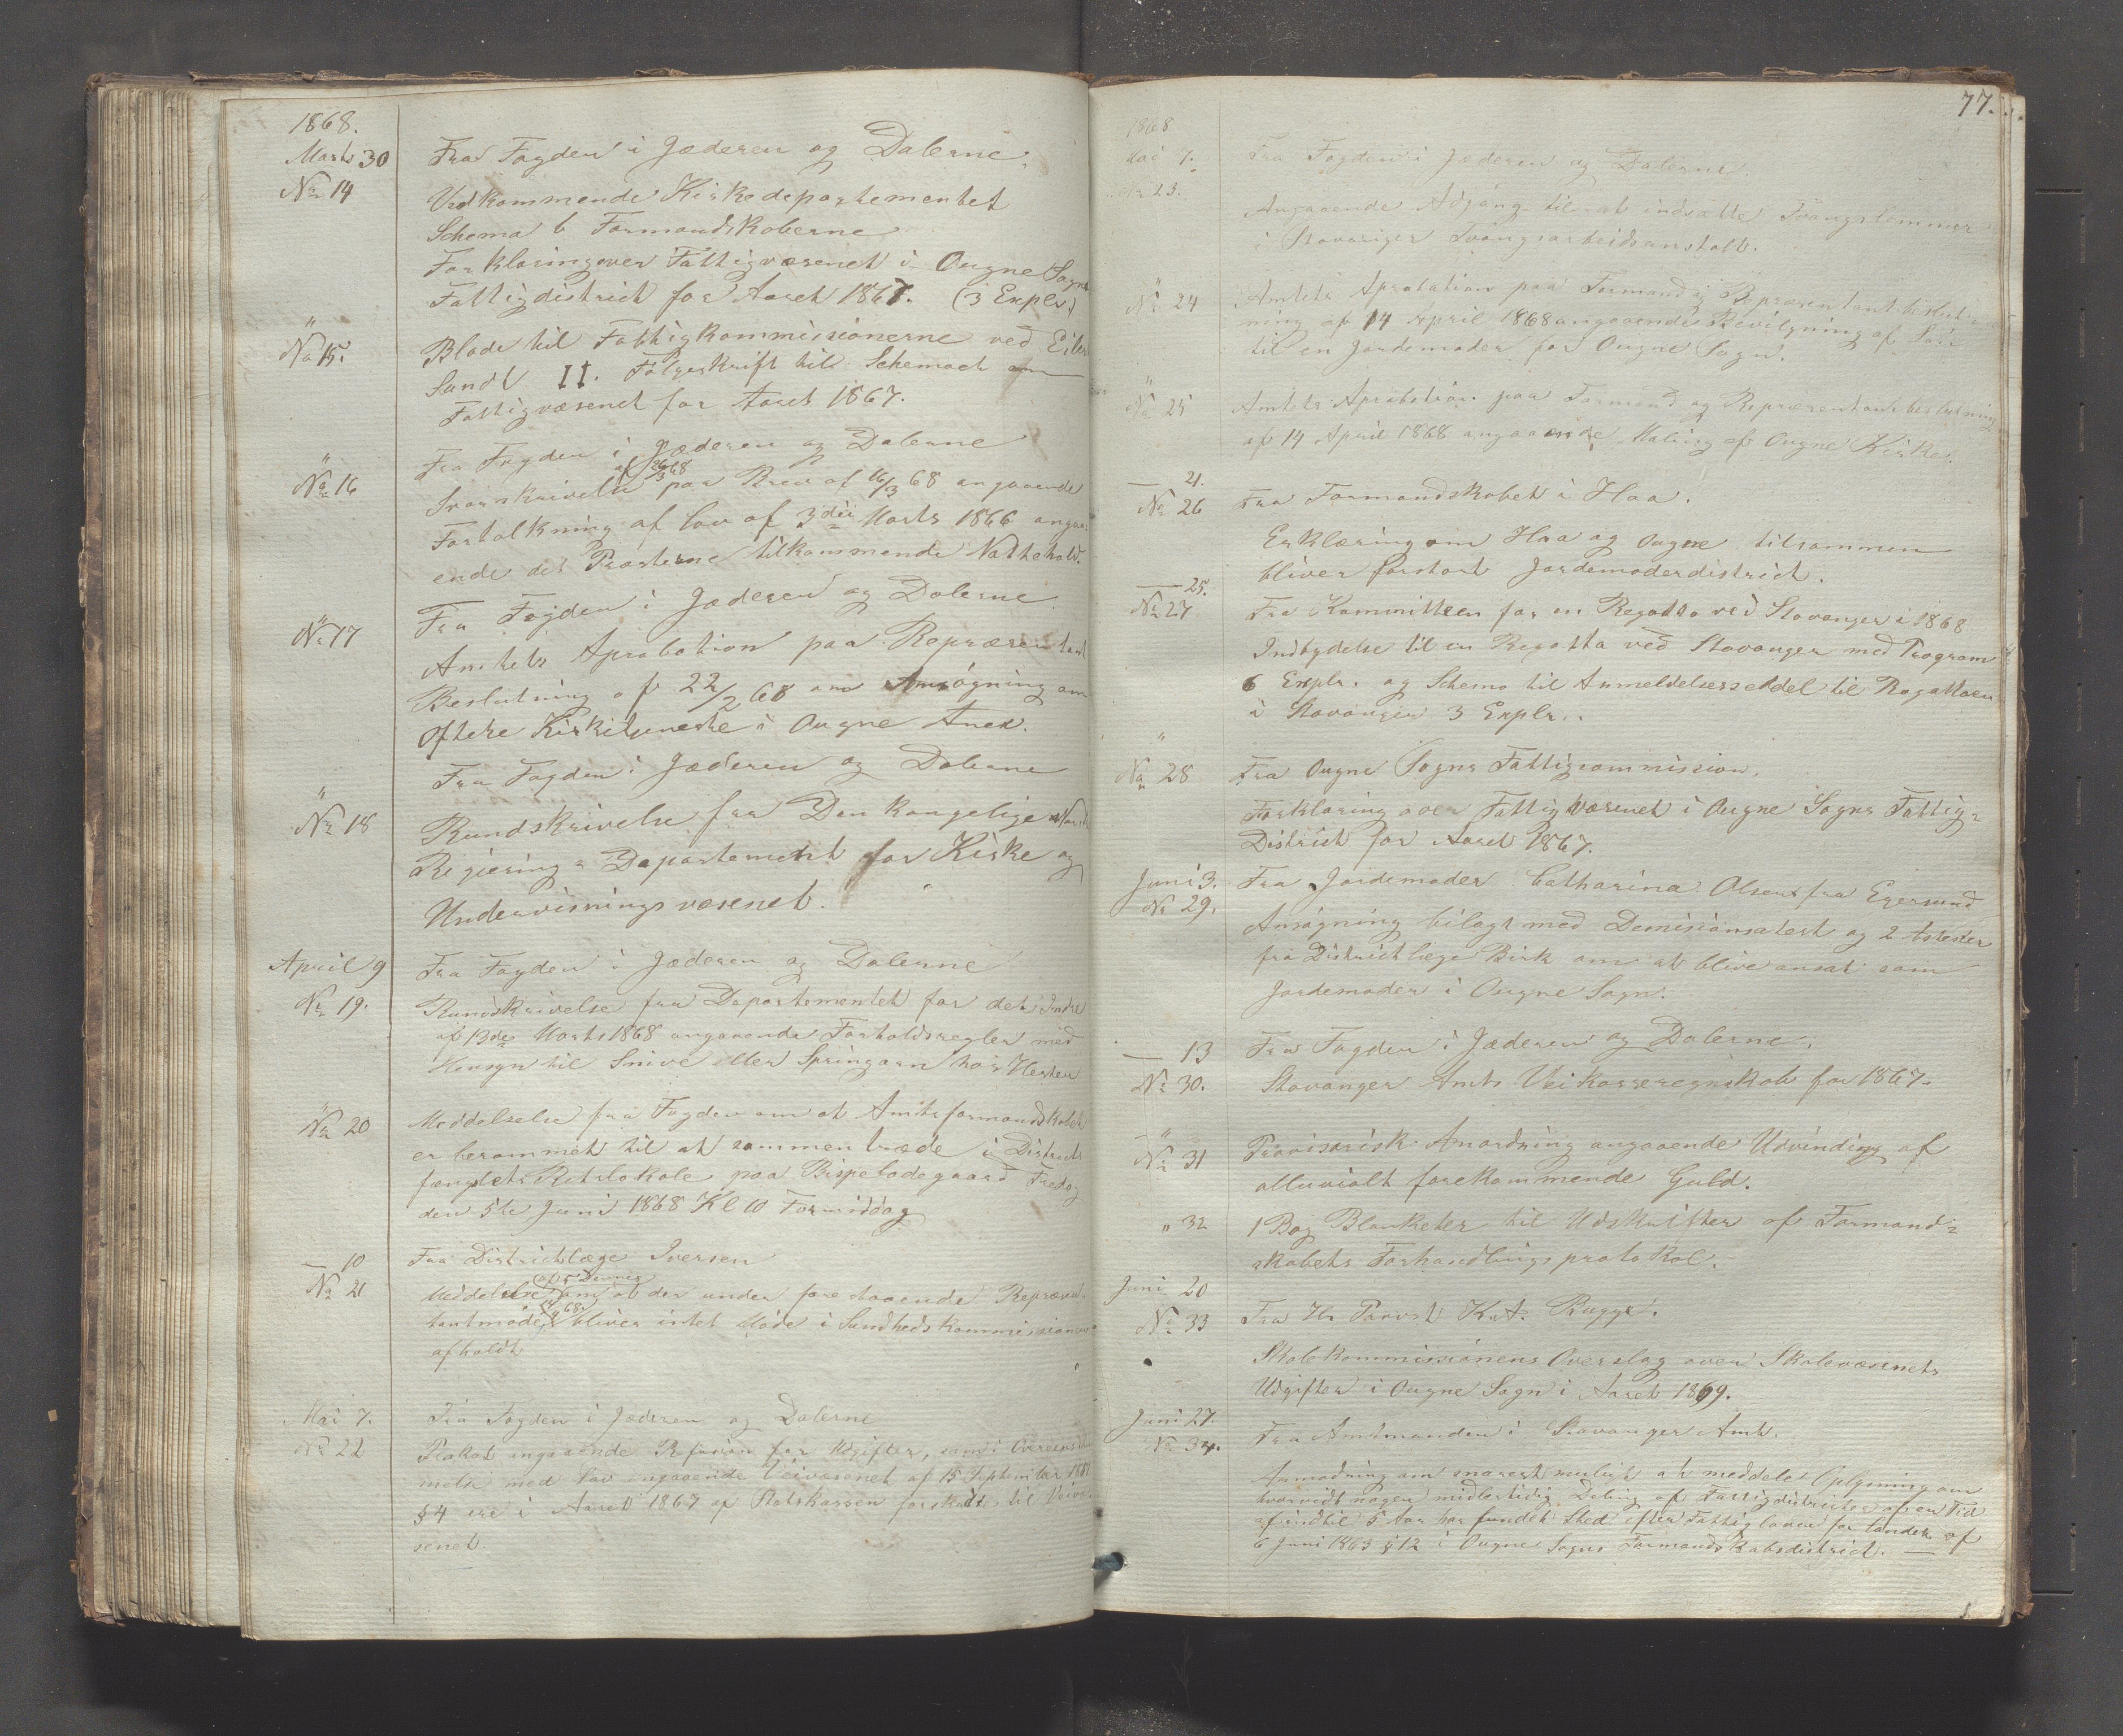 1868.
Marts 30
No 14
Fra Fogden i Jæderen og Dalerne.
Vedkommende Kirkedepartementet
Schema b Formandskaberne
Forklaring over Fattigvæsenet i Ougne Sogns
Fattigdistrict for Aaret 1867. (3 Explr.)
"
No 15.
Blade til Fattigkommissionerne ved Eilert
Sundt II. Følgeskrift til Schemaet om
Fattigvæsenet for Aaret 1867.
"
No 16
Fra Fogden i Jæderen og Dalerne
Svarskrivelse af 26/3 68 paa Brev af 16/3 68 angaaende
Fortolkning af Lov af 3die Marts 1866 angaa-
ende det Præsterne tilkommende Nattehold.
"
No 17
Fra Fogden i Jæderen og Dalerne
Amtets Aprobation paa Repræsentant
Beslutning af 22/2 68 om Ansøgning om
oftere Kirketjeneste i Ougne Anex.
"
No 18
Fra Fogden i Jæderen og Dalerne
Rundskrivelse fra Den kongelige Norske
Regjerings Departement for Kirke og
Undervisningsvæsenet.
April 9
No 19.
Fra Fogden i Jæderen og Dalerne
Rundskrivelse fra Departementet for det Indre
af 13de Marts 1868 angaaende Forholdsregler med
Hensyn til Snive eller Springorm hos Hesten
"
No 20
Meddelelse fra Fogden om at Amtsformandskabet
er berammet til at sammentræde i Districts
fængslets Retslokale paa Bispeladegaard Fredag
den 5te Juni 1868 Kl 10 Formiddag
— 10
No 21
Fra Districtslæge Iversen
Meddelelse om at der under forestaaende Repræsen-
tantmøde bliver intet Møde i Sundhedskommissionen
afholdt
Mai 7.
No 22
Fra Fogden i Jæderen og Dalerne
Plakat angaaende Refusion for Udgifter, som i Overensstem-
melse med Lov angaaende Veivæsenet af 15 September 1851
§ 4 ere i Aaret 1867 af Statskassen forskudte til Veivæ-
senet.
77.
1868
Mai 7.
No 23.
Fra Fogden i Jæderen og Dalerne.
Angaaende Adgang til at indsætte Tvangslemmer
i Stavanger Tvangsarbeidsanstalt.
"
No 24
Amtets Aprobation paa Formand og Repræsentantbeslut-
ning af 14 April 1868 angaaende Bevilgning af Løn
til en Jordemoder for Ougne Sogn.
"
No 25
Amtets Aprobation paa Formand og Repræsentantbeslutning
af 14 April 1868 angaaende Maling af Ougne Kirke.
— 21.
No 26
Fra Formandskabet i Haa.
Erklæring om Haa og Ougne tilsammen
bliver forstort Jordemoderdistrict.
— 25.
No 27
Fra Kommitteen for en Regatta ved Stavanger i 1868
Indbydelse til en Regatta ved Stavanger med Program
6 Explr. og Schema til Anmeldelsesseddel til Regattaen
i Stavanger 3 Explr.
"
No 28
Fra Ougne Sogns Fattigcommission.
Forklaring over Fattigvæsenet i Ougne Sogns Fattig-
District for Aaret 1867.
Juni 3.
No 29.
Fra Jordemoder Catharina Olsen fra Egersund
Ansøgning bilagt med Demisionsatest og 2 Atester
fra Districtlæge Birk om at blive ansat som
Jordemoder i Ougne Sogn.
— 13
No 30.
Fra Fogden i Jæderen og Dalerne.
Stavanger Amts Veikasseregnskab for 1867.
"
No 31
Provisorisk Anordning angaaende Udvinding af
alluvialt forekommende Guld.
" 32
1 Bog Blanketer til Udskrifter af Formand-
skabets Forhandlingsprotokol.
Juni 20
No 33
Fra Hr Provst K. A. Rugge.
Skolekommissionens Overslag over Skolevæsenets
Udgifter i Ougne Sogn i Aaret 1869.
Juni 27.
No 34.
Fra Amtmanden i Stavanger Amt.
Anmodning om snarest muligt at meddele Oplysning om
hvorvidt nogen midlertidig Deling af Fattigdistrictet for en Tid
af indtil 5 Aar har fundet Sted efter Fattigloven for Landet af
6 Juni 1863 § 12 i Ougne Sogns Formandskabsdistrict. —